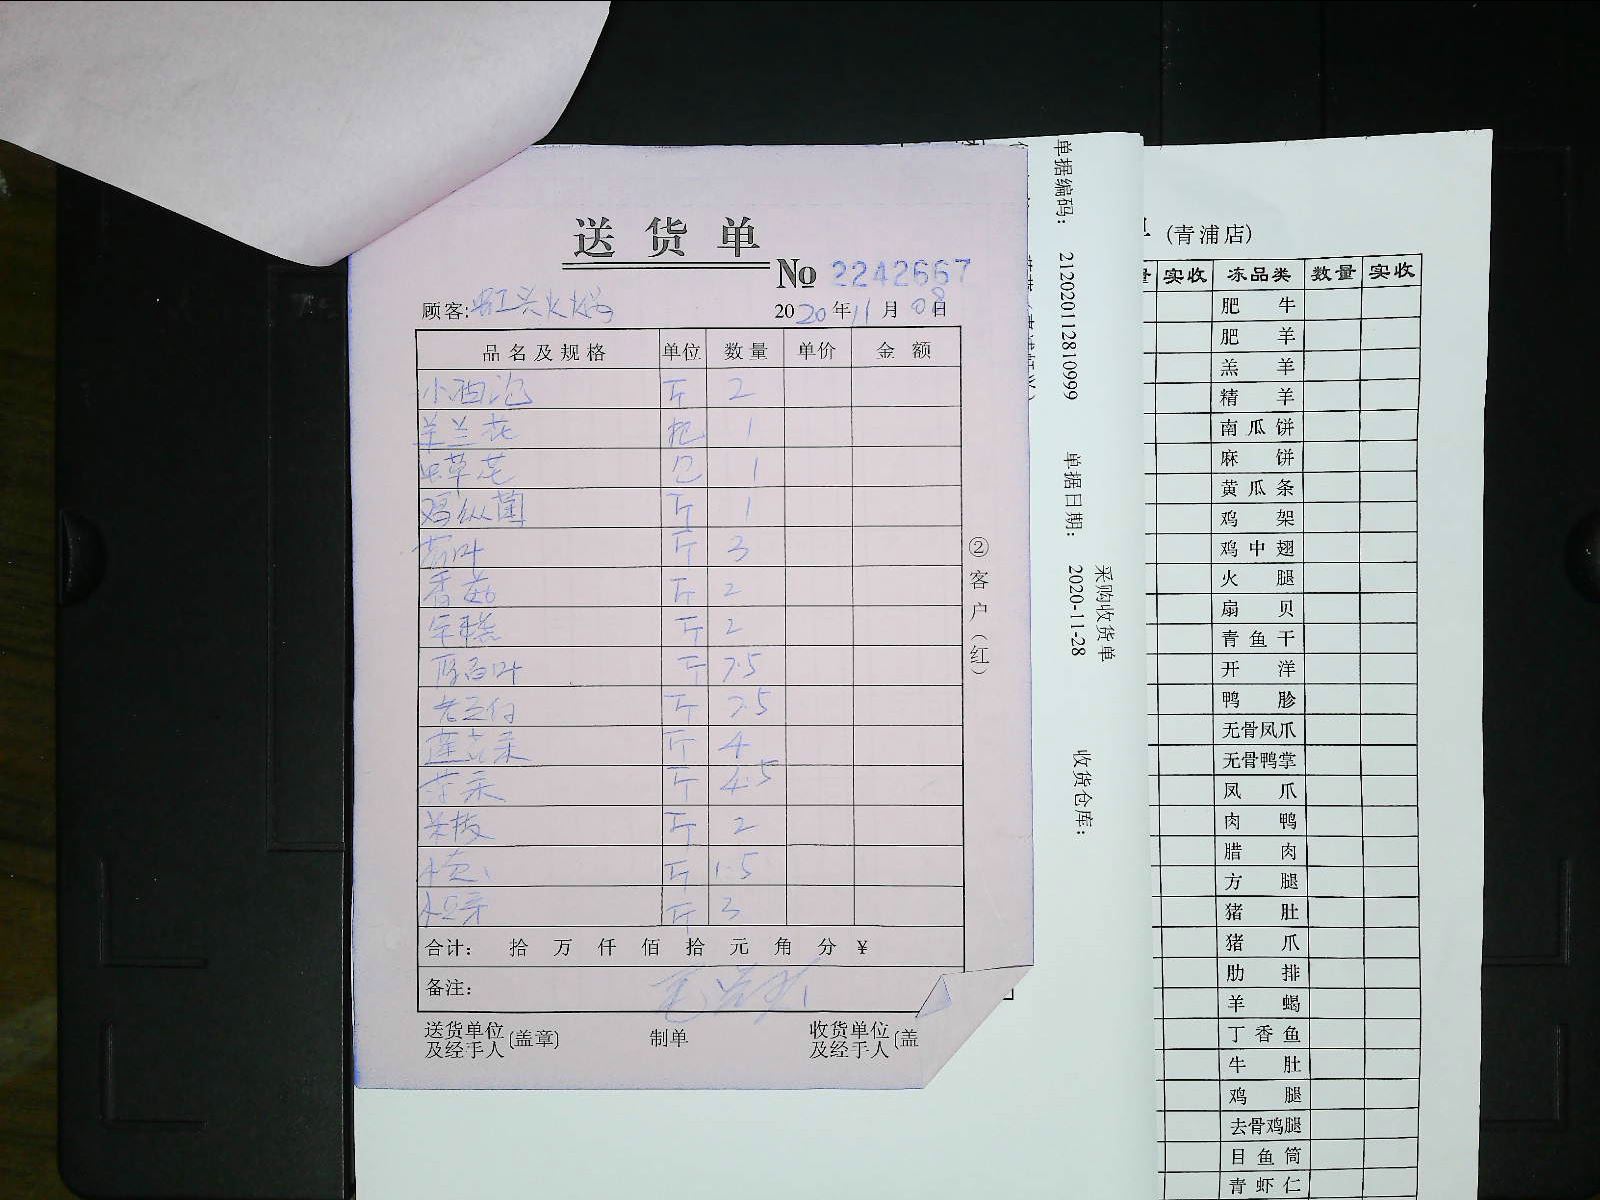 送货单
No 2242667
顾客:
2020年11月08日
品名及规格 单位 数量 单价 金额
小油泡 斤 2
兰花 把 1
虫草花 包 1
鸡枞菌 斤 1
斤 3
香菇 斤 2
年糕 斤 2
厚百叶 斤 7.5
老豆付 斤 7.5
蓬蒿菜 斤 4
芹菜 斤 4.5
米椒 斤 2
斤 1.5
小豆芽 斤 3
合计: 拾 万 仟 佰 拾 元 角 分 ¥
备注:
送货单位及经手人(盖章) 制单 收货单位及经手人(盖
②客户(红)
采购收货单
单据编码: 212020112810999 单据日期: 2020-11-28 收货仓库:
(青浦店)
实收 冻品类 数量 实收
肥牛
肥羊
羔羊
精羊
南瓜饼
麻饼
黄瓜条
鸡架
鸡中翅
火腿
扇贝
青鱼干
开洋
鸭胗
无骨凤爪
无骨鸭掌
凤爪
肉鸭
腊肉
方腿
猪肚
猪爪
肋排
羊蝎
丁香鱼
牛肚
鸡腿
去骨鸡腿
目鱼筒
青虾仁